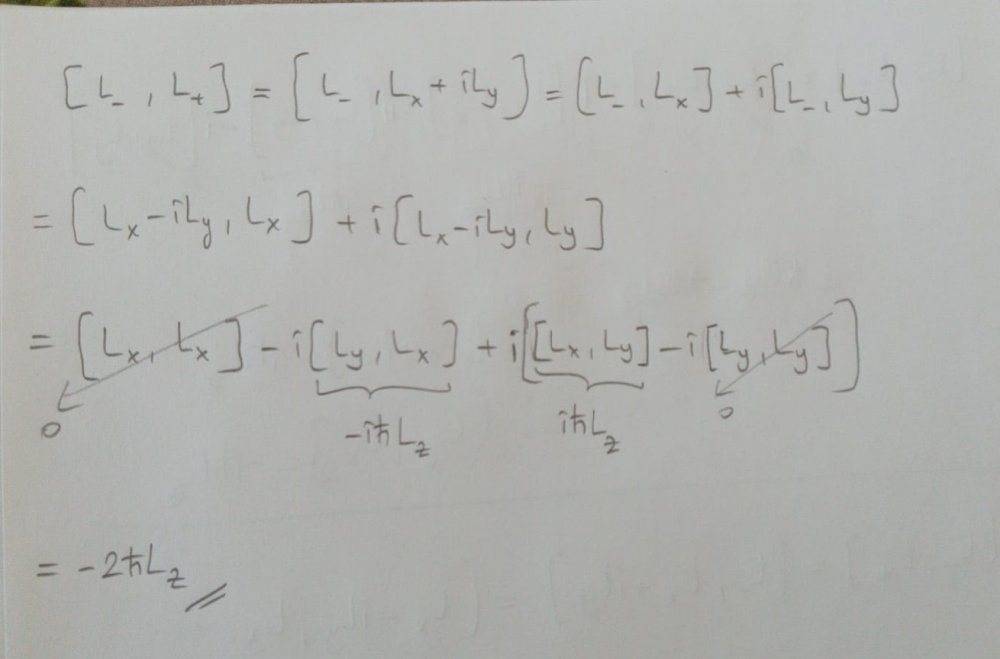 [L₋ , L₊] = [L₋ , Lₓ + iL_y] = [L₋ , Lₓ] + i[L₋ , L_y]
= [Lₓ - iL_y , Lₓ] + i[Lₓ - iL_y , L_y]
= [Lₓ , Lₓ] - i[L_y , Lₓ] + i[[Lₓ , L_y] - i[L_y , L_y]]
0 -iħL_z iħL_z 0
= -2ħL_z